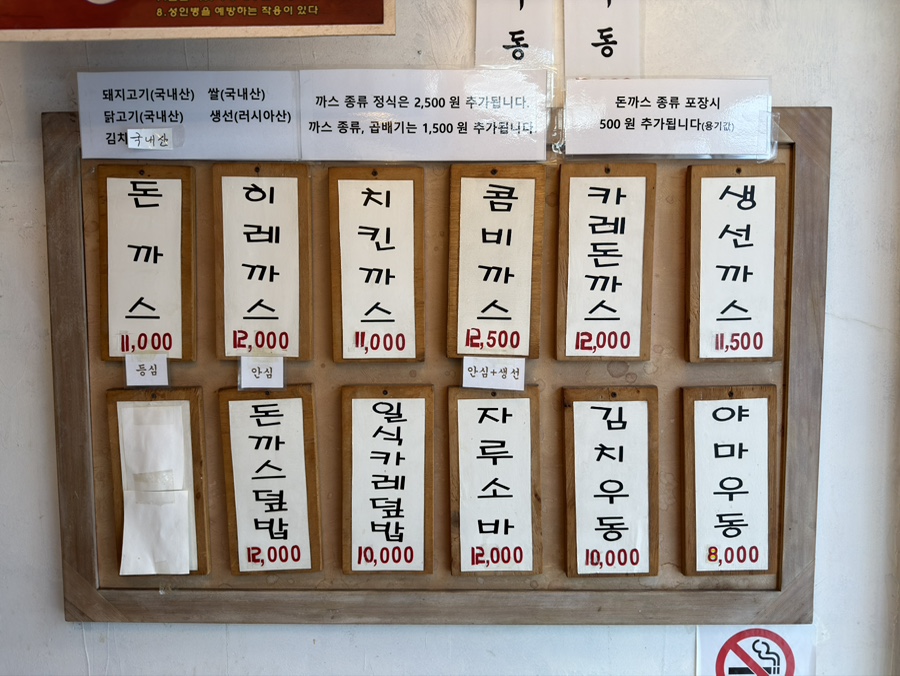 8.성인병을 예방하는 작용이 있다
동
동
돼지고기(국내산) 쌀(국내산)
닭고기(국내산) 생선(러시아산)
김치국내산
까스 종류 정식은 2,500 원 추가됩니다.
까스 종류, 곱배기는 1,500 원 추가됩니다.
돈까스 종류 포장시
500 원 추가됩니다(용기값)
돈까스
11,000
등심
히레까스
12,000
안심
치킨까스
11,000
콤비까스
12,500
안심+생선
카레돈까스
12,000
생선까스
11,500
돈까스덮밥
12,000
일식카레덮밥
10,000
자루소바
12,000
김치우동
10,000
야마우동
8,000